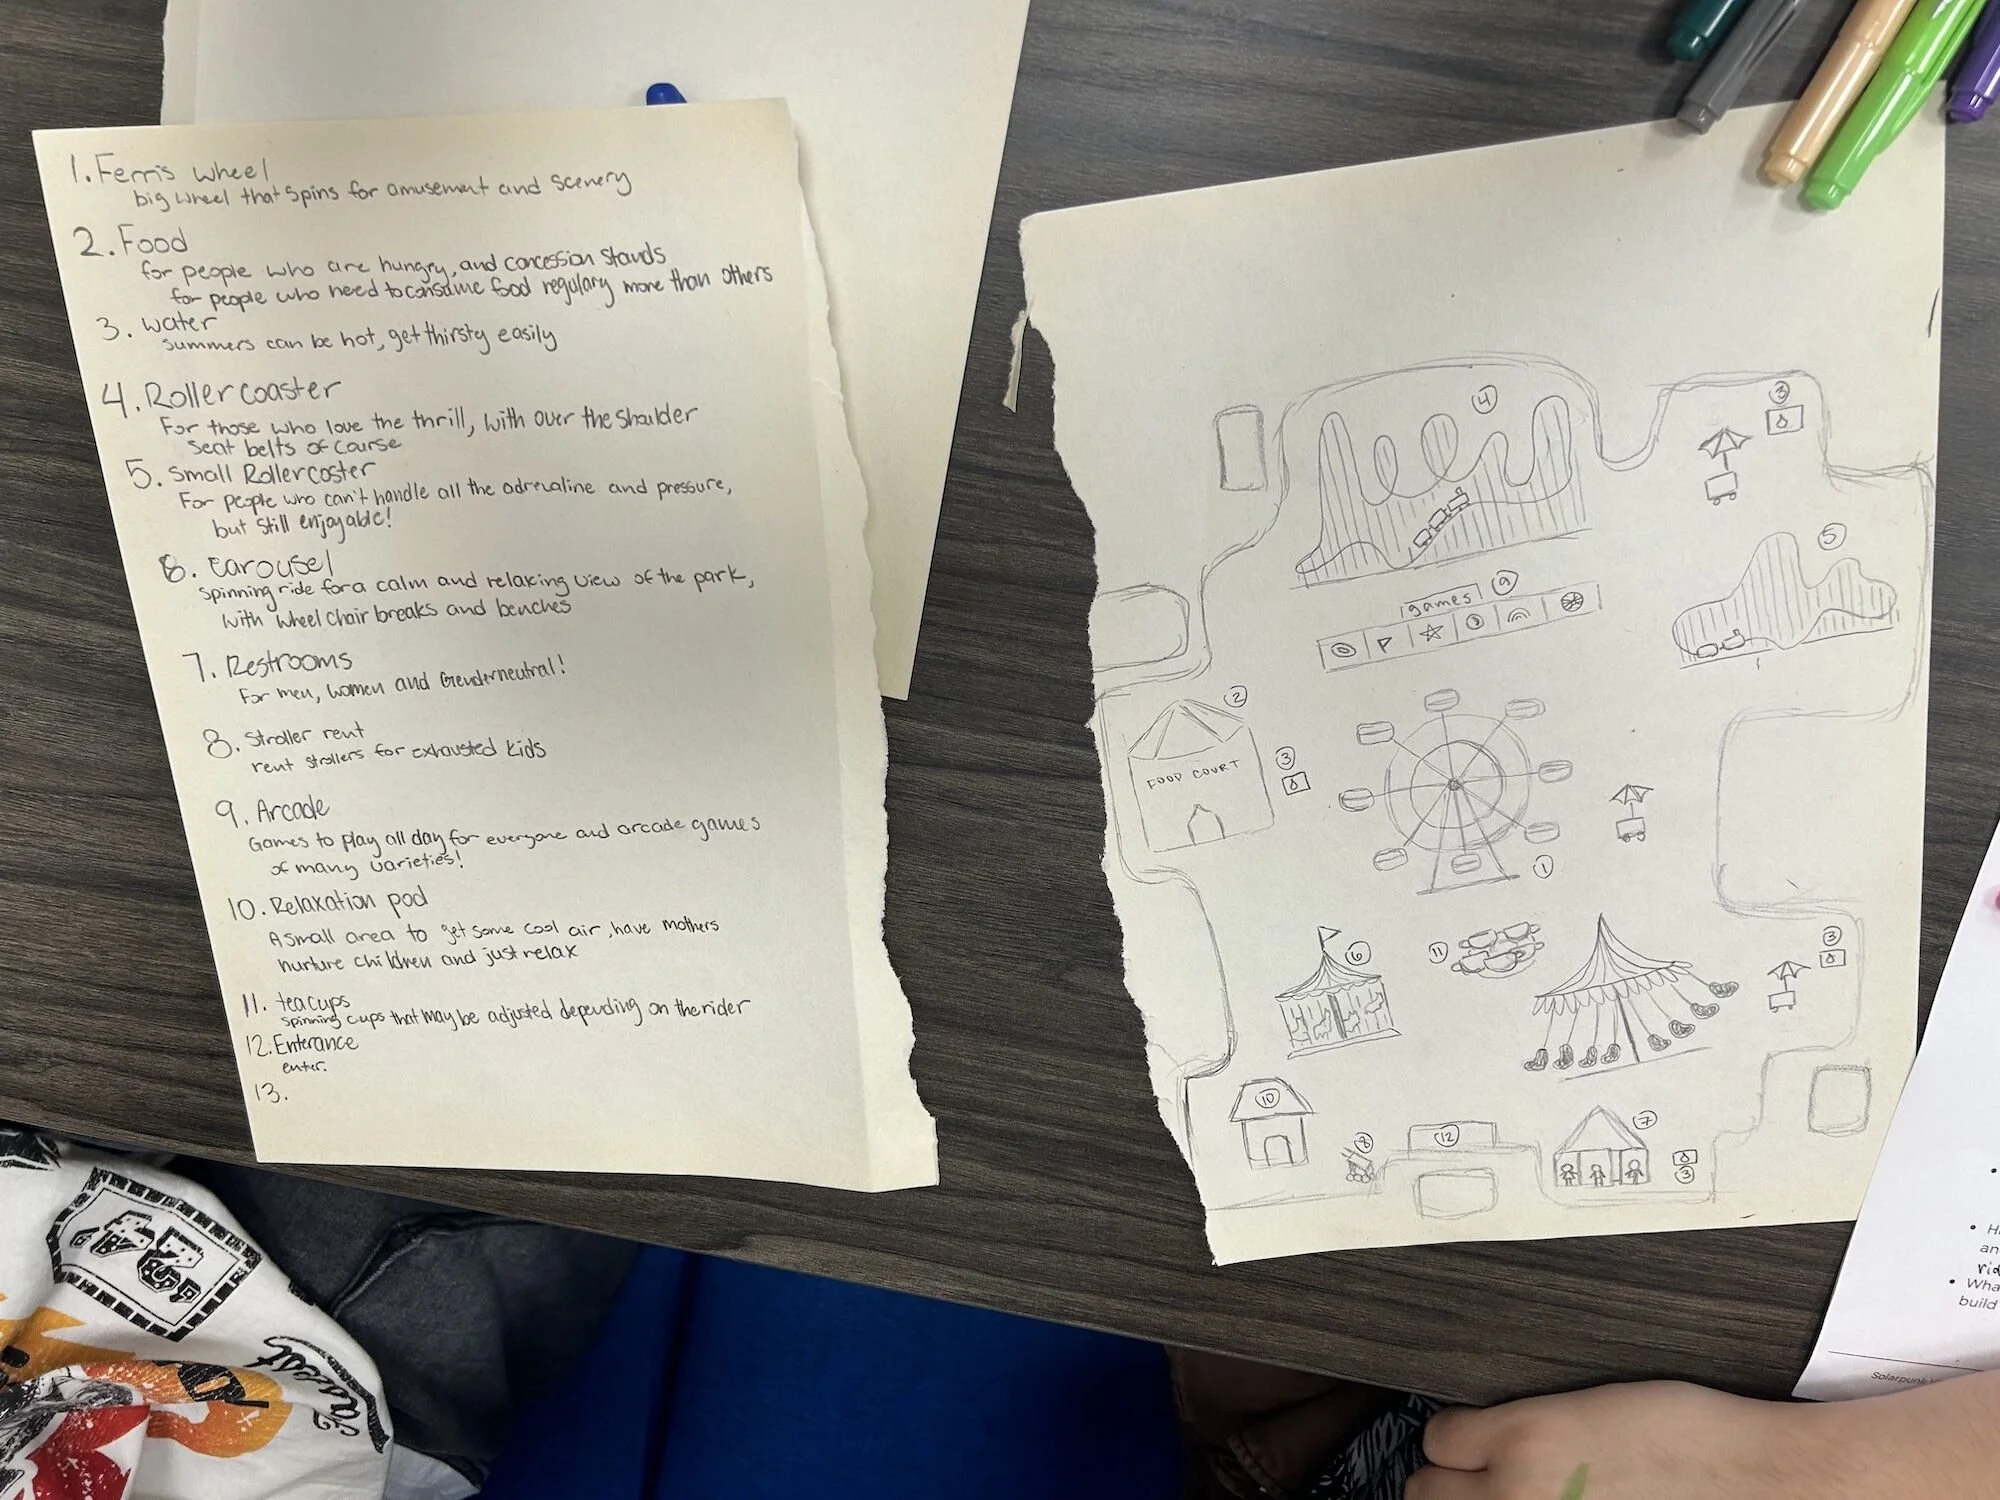 1. Ferris wheel
big wheel that spins for amusement and scenery
2. Food
for people who are hungry, and concession stands
for people who need to consume food regulary more than others
3. water
summers can be hot, get thirsty easily
4. Roller coaster
For those who love the thrill, with over the shoulder
seat belts of course
5. small Rollercoster
For people who can't handle all the adrenaline and pressure,
but still enjoyable!
6. Carousel
spinning ride for a calm and relaxing view of the park,
with wheel chair breaks and benches
7. Restrooms
For men, women and Genderneutral!
8. Stroller rent
rent strollers for exhausted kids
9. Arcade
Games to play all day for everyone and arcade games
of many varieties!
10. Relaxation pod
A small area to get some cool air, have mothers
nurture children and just relax
11. teacups
spinning cups that may be adjusted depending on the rider
12. Enterance
enter.
13.
4
3
5
games
9
2
FOOD COURT
3
1
6
11
3
10
8
12
7
3
Solarpunk
• H
an
rid
• Wha
build